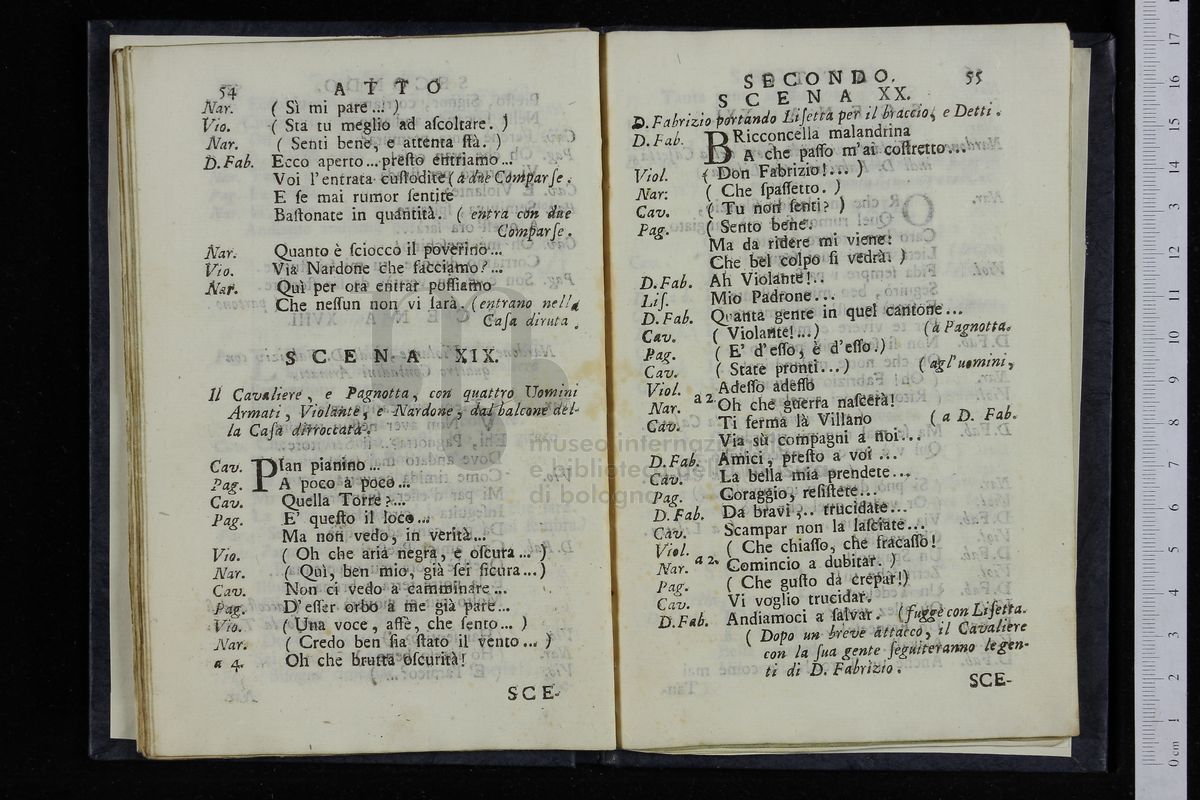 54 ATTO
Nar. ( Sì mi pare ... )
Vio. ( Sta tu meglio ad aſcoltare. )
Nar. ( Senti bene, e attenta ſtà. )
D. Fab. Ecco aperto ... preſto entriamo ...
Voi l'entrata cuſtodite ( a due Comparſe .
E ſe mai rumor ſentite
Baſtonate in quantità. ( entra con due
Comparſe .
Nar. Quanto è ſciocco il poverino ...
Vio. Via Nardone che facciamo? ...
Nar. Quì per ora entrar poſſiamo
Che neſſun non vi ſarà. ( entrano nella
Caſa diruta .
SCENA XIX.
Il Cavaliere , e Pagnotta, con quattro Uomini
Armati , Violante, e Nardone, dal balcone del-
la Caſa dirroccata .
Cav. PIan pianino ...
Pag. A poco a poco ...
Cav. Quella Torre? ...
Pag. E' queſto il loco ...
Ma non vedo, in verità ...
Vio. ( Oh che aria negra, e oſcura ... )
Nar. ( Quì, ben mio, già ſei ſicura ... )
Cav. Non ci vedo a camminare ...
Pag. D'eſſer orbo a me già pare ...
Vio. ( Una voce, affè, che ſento ... )
Nar. ( Credo ben ſia ſtato il vento ... )
a 4. Oh che brutta oſcurità!
SCE-
SECONDO. 55
SCENA XX.
D. Fabrizio portando Liſetta per il braccio, e Detti .
D. Fab. BRicconcella malandrina
A che paſſo m'ai coſtretto ...
Viol. ( Don Fabrizio! ... )
Nar. ( Che ſpaſſetto. )
Cav. ( Tu non ſenti? )
Pag. ( Sento bene.
Ma da ridere mi viene:
Che bel colpo ſi vedrà. )
D. Fab. Ah Violante! ..
Liſ. Mio Padrone ...
D. Fab. Quanta gente in quel cantone ...
Cav. ( Violante! ... ) ( a Pagnotta.
Pag. ( E' d'eſſo, è d'eſſo. )
Cav. ( State pronti ... ) ( agl'uomini,
Viol. Adeſſo adeſſo
Nar. a 2 Oh che guerra naſcerà!
Cav. Ti ferma là Villano ( a D. Fab.
Via sù compagni a noi ...
D. Fab. Amici, preſto a voi ...
Cav. La bella mia prendete ...
Pag. Coraggio, reſiſtete ...
D. Fab. Da bravi , .. trucidate ...
Cav. Scampar non la laſciate ...
Viol. ( Che chiaſſo, che fracaſſo!
Nar. a 2. Comincio a dubitar. )
Pag. ( Che guſto da crepar! )
Cav. Vi voglio trucidar.
D. Fab. Andiamoci a ſalvar. ( fugge con Liſetta.
( Dopo un breve attacco, il Cavaliere
con la ſua gente ſeguiteranno le gen-
ti di D. Fabrizio .
SCE-
museo internaz
e biblioteca della
di bologna